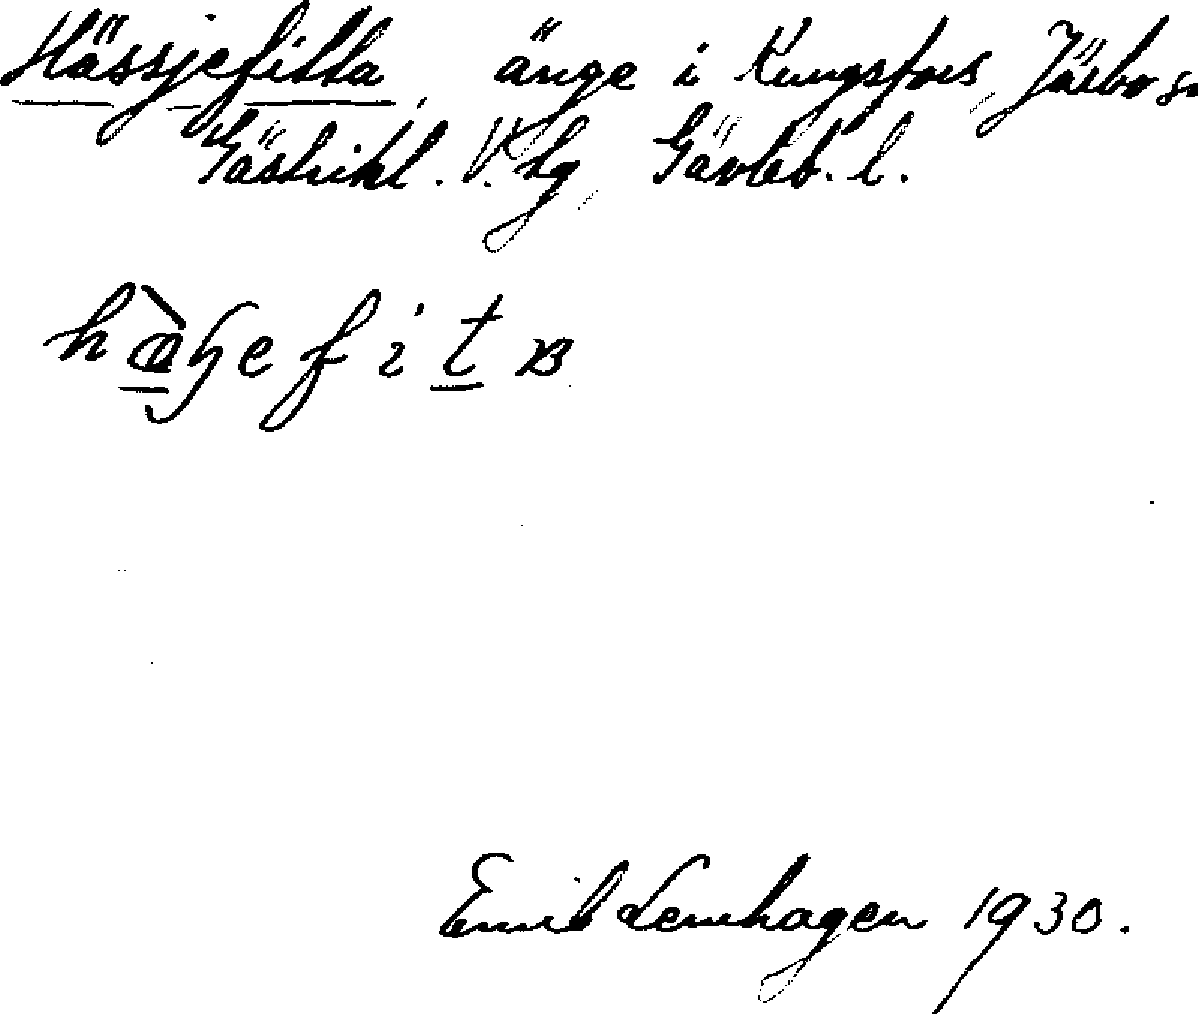 Hässjefitta, änge i Kungsfors, Järbo sn
Gästrikl. V. tg, Gävleb. l.
Emil Lenhagen 1930.